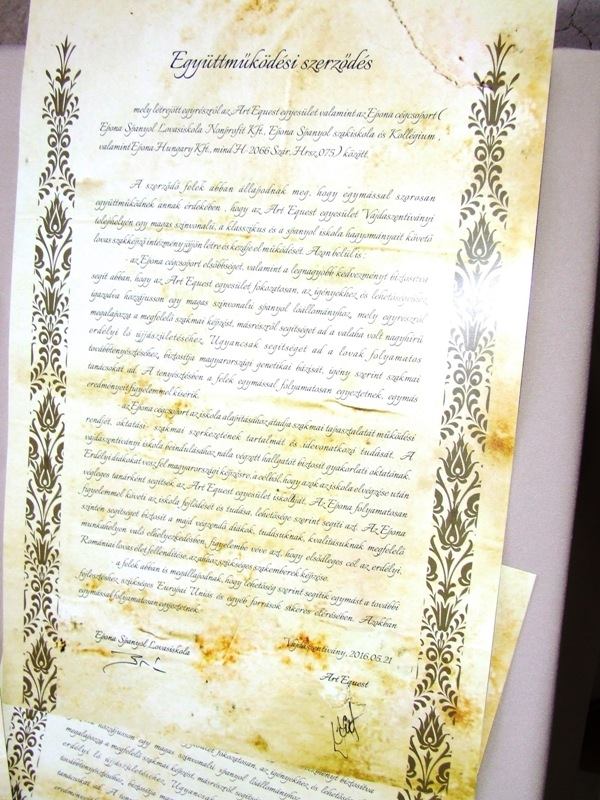 Együttműködési szerződés
mely létrejött egyrészről az Art Equest egyesület valamint az Epona cégcsoport (
Epona Spanyol Lovasiskola Nonprofit Kft., Epona Spanyol szakiskola és Kollégium ,
valamint Epona Hungary Kft., mind H-2066 Szár, Hrsz.075) között.
A szerződő felek abban állapodnak meg, hogy egymással szorosan
együttműködnek annak érdekében , hogy az Art Equest egyesület Vajdaszentiványi
telephelyen egy magas színvonalú, a klasszikus és a spanyol iskola hagyományait követő
lovas szakképző intézmény jöjjön létre és kezdje el működését. Azon belül is :
- az Epona cégcsoport elsőbbséget, valamint a legnagyobb kedvezményt biztosítva
segít abban, hogy az Art Equest egyesület fokozatosan, az igényekhez és lehetőségekhez
igazodva hozzájusson egy magas színvonalú spanyol lóállományhoz, mely egyrészről
megalapozza a megfelelő szakmai képzést, másrészről segítséget ad a valaha volt nagyhírű
erdélyi ló újjászületéséhez. Ugyancsak segítséget ad a lovak folyamatos
továbbtenyésztéséhez, biztosítja magyarországi genetikai bázisát, igény szerint szakmai
tanácsokat ad. A tenyésztésben a felek egymással folyamatosan egyeztetnek, egymás
eredményeit figyelemmel kísérik.
- az Epona cégcsoport az iskola alapításához átadja szakmai tapasztalatát működési
rendjét, oktatási- szakmai szerkezetének tartalmát és idevonatkozó tudását. A
vajdaszentiványi iskola beindulásához nála végzett hallgatót biztosít gyakorlati oktatónak.
Erdélyi diákokat vesz fel magyarországi képzésre, a célból, hogy azok az iskola elvégzése után
végleges tanárként segítsék az Art Equest egyesület iskoláját. Az Epona folyamatosan
figyelemmel követi az iskola fejlődését és tudása, lehetősége szerint segíti azt. Az Epona
szintén segítséget biztosít a majd végzendő diákok, tudásuknak, kvalitásuknak megfelelő
munkahelyen való elhelyezkedésben, figyelembe véve azt, hogy elsődleges cél az erdélyi,
Romániai lovas élet fellendítése, az ahhoz szükséges szakemberek képzése.
- a felek abban is megállapodnak, hogy lehetőség szerint segítik egymást a további
fejlesztéshez szükséges Európai Uniós és egyéb források sikeres elérésében. Azokban
egymással folyamatosan egyeztetnek.
Epona Spanyol Lovasiskola
Vajdaszentivány, 2016.05.21
Art Equest
hozzájusson egy magas színvonalú spanyol lóállományhoz,
megalapozza a megfelelő szakmai képzést, másrészről
erdélyi ló újjászületéséhez. Ugyancsak
továbbtenyésztéséhez, biztosítja
tanácsokat ad. A
eredményeit